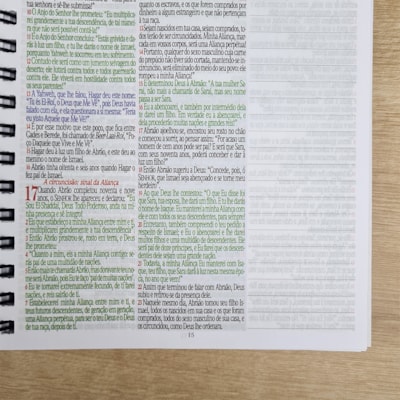 senhora e sê-lhe submissa!"
10 O Anjo do Senhor lhe prometeu: "Eu multiplica-
rei grandemente a tua descendência, de tal manei-
ra que não será possível contá-la!"
11 E o Anjo do Senhor concluiu: "Estás grávida e da-
rás à luz um filho, e tu lhe darás o nome de Ismael,
porquanto Yahweh te socorreu em teu sofrimento.
12 Contudo ele será como um jumento selvagem no
deserto; ele lutará contra todos e todos guerrearão
contra ele. Ele viverá em hostilidade contra todos
os seus parentes!"
13 A Yahweh, que lhe falou, Hagar deu este nome:
"Tu és El-Roí, o Deus que Me Vê", pois Deus havia
falado com ela, e ela questionou a si mesma: "Teria
eu visto Aquele que Me Vê?"
14 É por este motivo que este poço, que fica entre
Cades e Berede, foi chamado de Beer Laai-Roí, "Po-
ço Daquele que Vive e Me Vê".
15 Hagar deu à luz um filho de Abrão, e este deu ao
mesmo o nome de Ismael.
16 Abrão tinha oitenta e seis anos quando Hagar o
fez pai de Ismael.
A circuncisão: sinal da Aliança
17 Quando Abrão completou noventa e nove
anos, o SENHOR lhe apareceu e declarou: "Eu
Sou El-Shaddai, Deus Todo-Poderoso, anda na mi-
nha presença e sê íntegro!
2 Eu que estabeleço a minha Aliança entre mim e ti,
e multiplicarei grandemente a tua descendência!"
3 Então Abrão prostrou-se, rosto em terra, e Deus
lhe prometeu:
4 "Quanto a mim, eis a minha Aliança contigo: se-
rás pai de uma multidão de nações.
5 E não mais te chamarás Abrão, mas doravante teu no-
me será Abraão, pois Eu te faço 'pai de muitas nações'.
6 Eu te tornarei extremamente fecundo, de ti farei
nações, e reis sairão de ti.
7 Estabelecerei minha Aliança entre mim e ti, e
teus futuros descendentes, de geração em geração,
uma Aliança perpétua, para ser o teu Deus e o Deus
de tua raça, depois de ti.
quanto os escravos, e os que forem comprados por
dinheiro a algum estrangeiro e que não pertençam
à tua raça.
13 Sejam nascidos em tua casa, sejam comprados, to-
dos terão de ser circuncidados. Minha Aliança, mar-
cada em vossos corpos, será uma Aliança perpétua!
14 Portanto, qualquer do sexo masculino cuja carne
do prepúcio não tiver sido cortada, mantendo-se in-
circunciso, será eliminado do meio do seu povo: ele
rompeu a minha Aliança!"
15 E determinou Deus a Abraão: "A tua mulher Sa-
rai, não mais a chamarás de Sarai, mas seu nome
passa a ser Sara.
16 Eu a abençoarei, e também por intermédio dela
te darei um filho. Em verdade Eu a abençoarei, e
dela procederão muitas nações e grandes reis!"
17 Abraão ajoelhou-se, encostou seu rosto no chão
e começou a sorrir, ao pensar consigo: "Por acaso um
homem de cem anos pode ser pai? E será que Sara,
com seus noventa anos, poderá conceber e dar à
luz um filho?"
18 Então Abraão sugeriu a Deus: "Concede, pois, ó
SENHOR, que Ismael seja abençoado e se torne her-
deiro!"
19 Ao que Deus lhe contestou: "O que Eu disse foi
que Sara, tua esposa, te dará um filho. E tu lhe darás
o nome de Isaque. Eu manterei a minha Aliança com
ele e com todos os seus descendentes, para sempre!
20 Entretanto, também compreendo o teu pedido a
respeito de Ismael; e Eu o abençoarei e lhe darei
muitos filhos e uma multidão de descendentes. Ele
será pai de doze príncipes, e Eu farei que os descen-
dentes dele sejam uma grande nação.
21 Todavia, a minha Aliança Eu manterei com Isa-
que, teu filho, que Sara dará à luz nesta mesma épo-
ca, no ano que vem!"
22 Assim que terminou de falar com Abraão, Deus
subiu e retirou-se da presença dele.
23 Naquele mesmo dia, Abraão tomou seu filho Is-
mael, todos os nascidos em sua casa e os que foram
comprados, todos do sexo masculino de sua casa, e
os circuncidou, como Deus lhe ordenara.
15